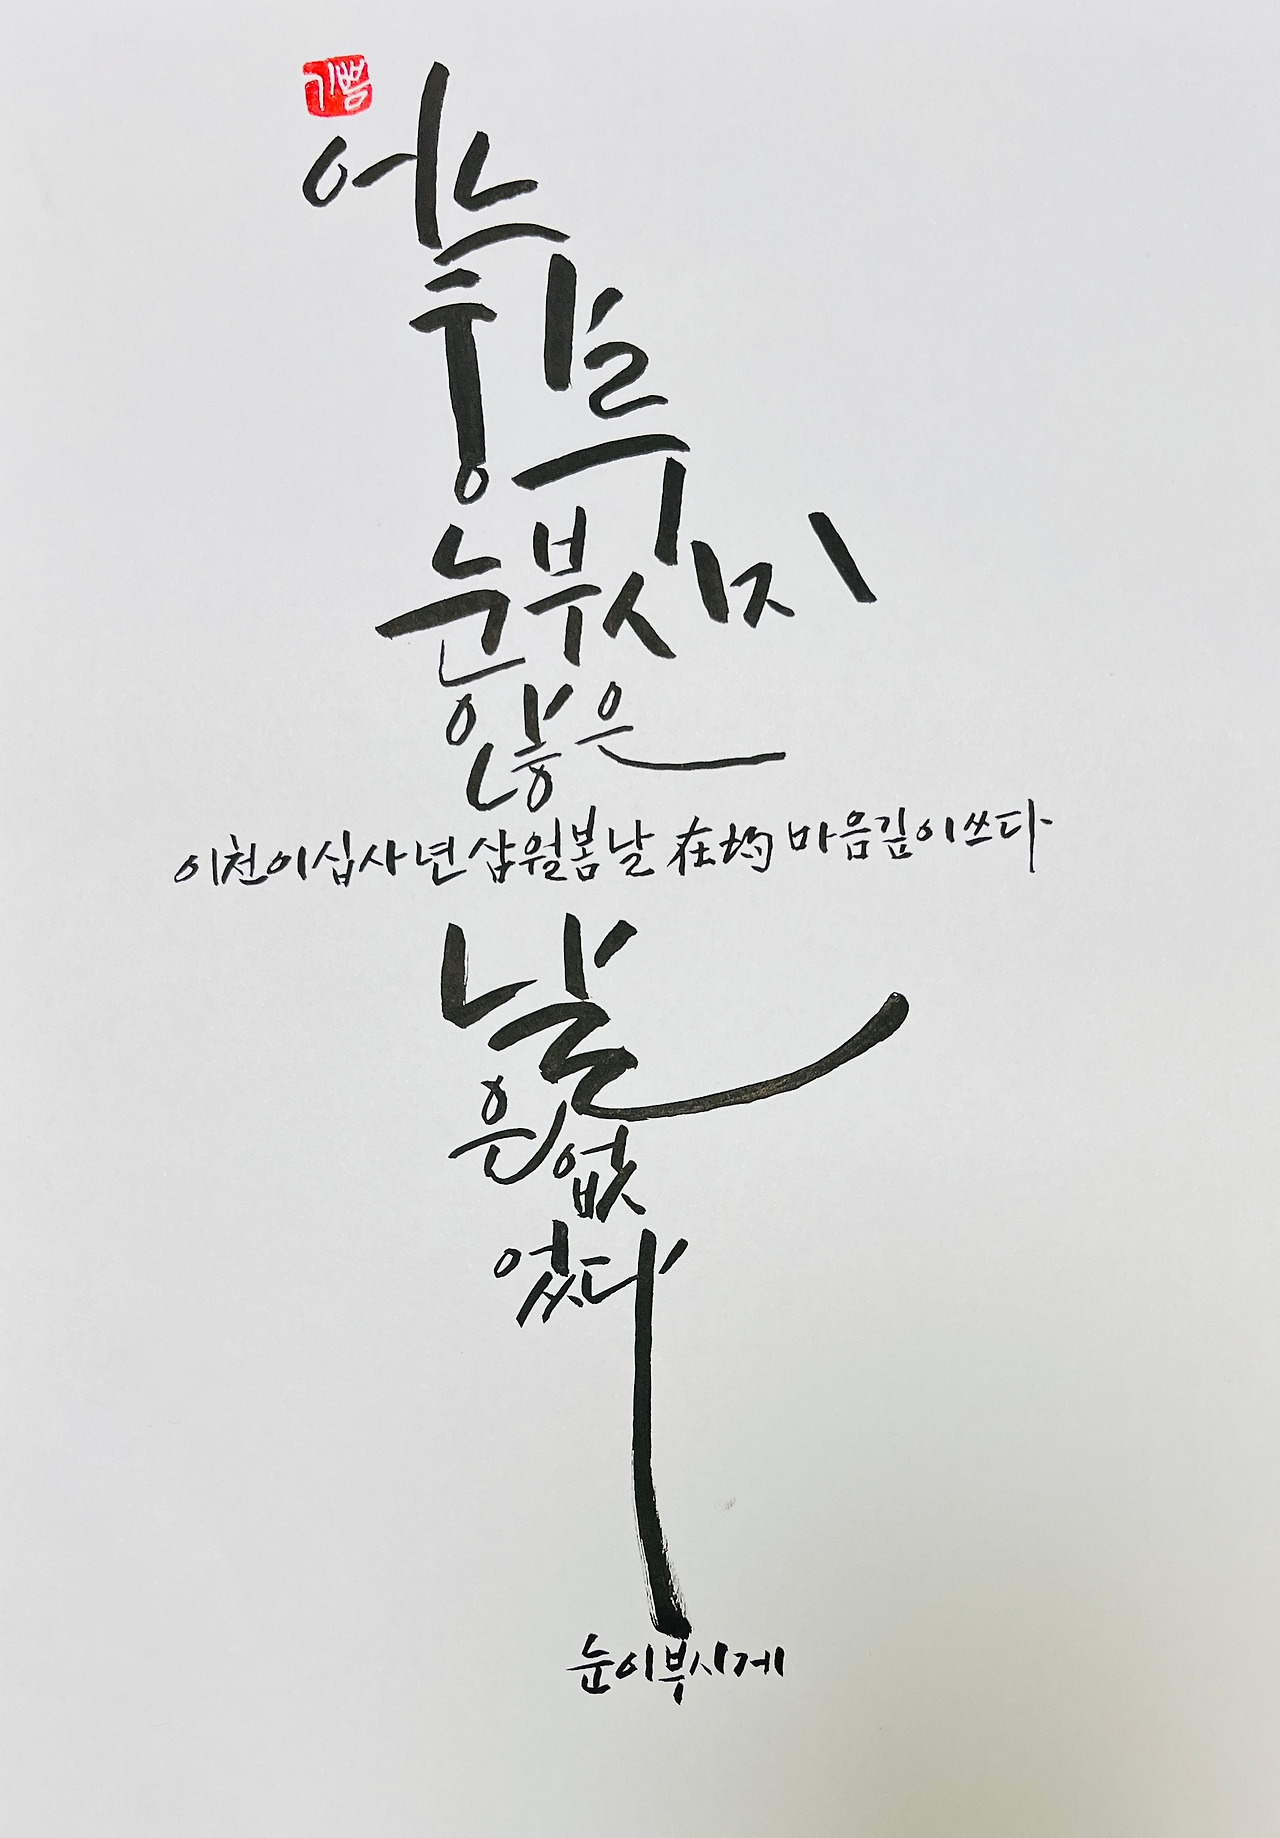 기쁨
어느
하루
눈부시지
않은
이천이십사년 삼월 봄날 在均 마음깊이 쓰다
날
은 없
었다
눈이부시게